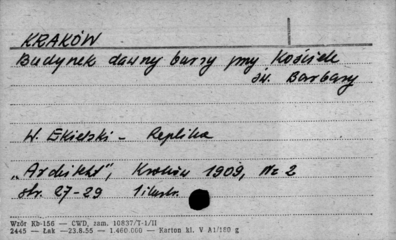 KRAKÓW
Budynek dawny bursy przy Kościele
św. Barbary
W. Ekielski – Replika
„Architekt", Kraków 1909, Nr 2
str. 27-29 1 ilustr.
Wzór Kb-156 — CWD, zam. 10837/T-1/II
2445 — Łak —23.8.55 — 1.460.000 — Karton kl. V A1/180 g